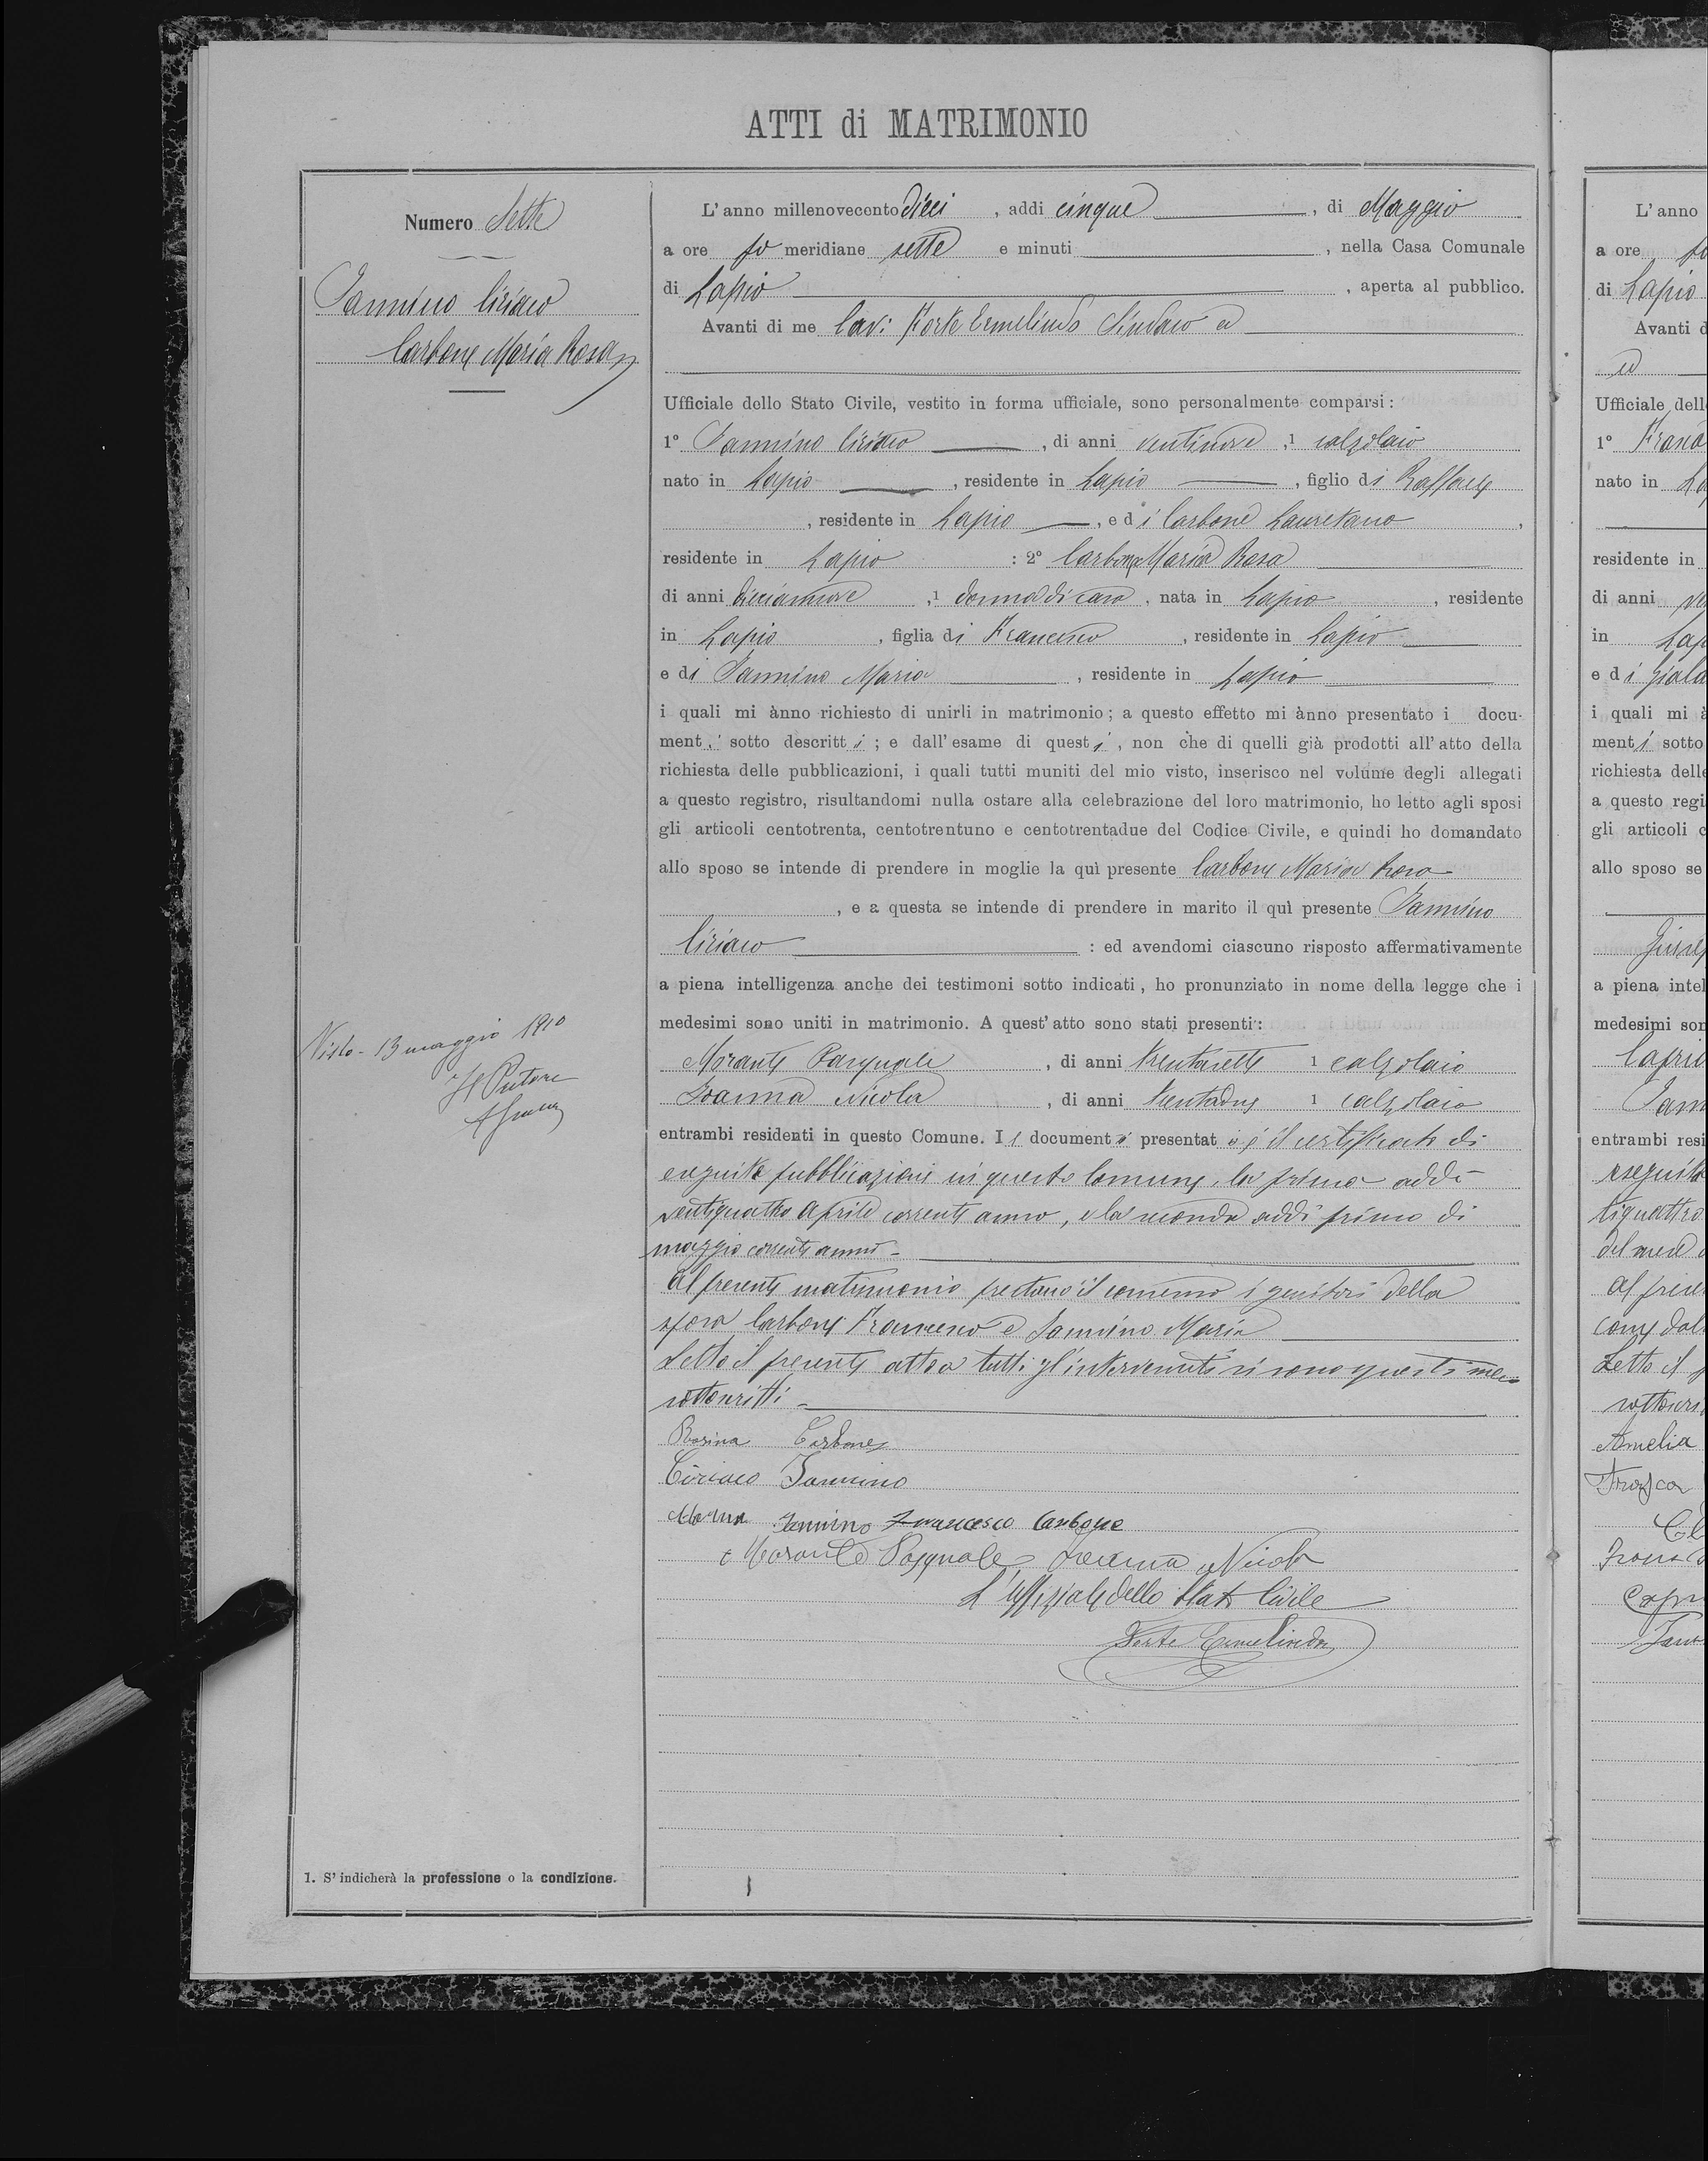 ATTI di MATRIMONIO
Numero Sette
Iannino Ciriaco
Carbone Maria Rosa
Visto - 13 maggio 1910
Il Pretore
1. S' indicherà la professione o la condizione.
L' anno millenovecento dieci , addi cinque , di Maggio
a ore po meridiane sette e minuti , nella Casa Comunale
di Lapio , aperta al pubblico.
Avanti di me Cav: Forte Ermelindo Sindaco ed
Ufficiale dello Stato Civile, vestito in forma ufficiale, sono personalmente comparsi:
1° Iannino Ciriaco , di anni ventinove ,1 calzolaio
nato in Lapio , residente in Lapio , figlio di Raffaele
, residente in Lapio , e di Carbone Lauretana ,
residente in Lapio : 2° Carbone Maria Rosa
di anni diciannove ,1 donna di casa , nata in Lapio , residente
in Lapio , figlia di Francesco , residente in Lapio
e di Iannino Maria , residente in Lapio
i quali mi ànno richiesto di unirli in matrimonio; a questo effetto mi ànno presentato i docu-
menti sotto descritti ; e dall' esame di questi , non che di quelli già prodotti all' atto della
richiesta delle pubblicazioni, i quali tutti muniti del mio visto, inserisco nel volume degli allegati
a questo registro, risultandomi nulla ostare alla celebrazione del loro matrimonio, ho letto agli sposi
gli articoli centotrenta, centotrentuno e centotrentadue del Codice Civile, e quindi ho domandato
allo sposo se intende di prendere in moglie la quì presente Carbone Maria Rosa
, e a questa se intende di prendere in marito il quì presente Iannino
Ciriaco : ed avendomi ciascuno risposto affermativamente
a piena intelligenza anche dei testimoni sotto indicati, ho pronunziato in nome della legge che i
medesimi sono uniti in matrimonio. A quest' atto sono stati presenti:
Morante Pasquale , di anni trentasette 1 calzolaio
Ioanna Nicola , di anni trentadue 1 calzolaio
entrambi residenti in questo Comune. Il documento presentato è il certificato di
eseguite pubblicazioni in questo Comune, la prima addì
ventiquattro aprile corrente anno, e la seconda addì primo di
maggio corrente anno -
Al presente matrimonio prestano il consenso i genitori della
sposa Carbone Francesco e Iannino Maria
Letto il presente atto a tutti gl'intervenuti si sono questi meco
sottoscritti -
Rosina Carbone
Ciriaco Iannino
Maria Iannino Francesco Carbone
Morante Pasquale Ioanna Nicola
L'Uffiziale dello Stato Civile
Forte Ermelindo
L' anno
a ore po
di Lapio
Avanti d
ed
Ufficiale dell
1°
nato in
residente in
di anni
in Lap
e di
i quali mi
menti sotto
richiesta delle
a questo regi
gli articoli c
allo sposo se
a piena intel
medesimi son
entrambi resi
eseguite
tiquattro
del mese
Al prese
come dal
Letto il p
sottoscri
Amelia